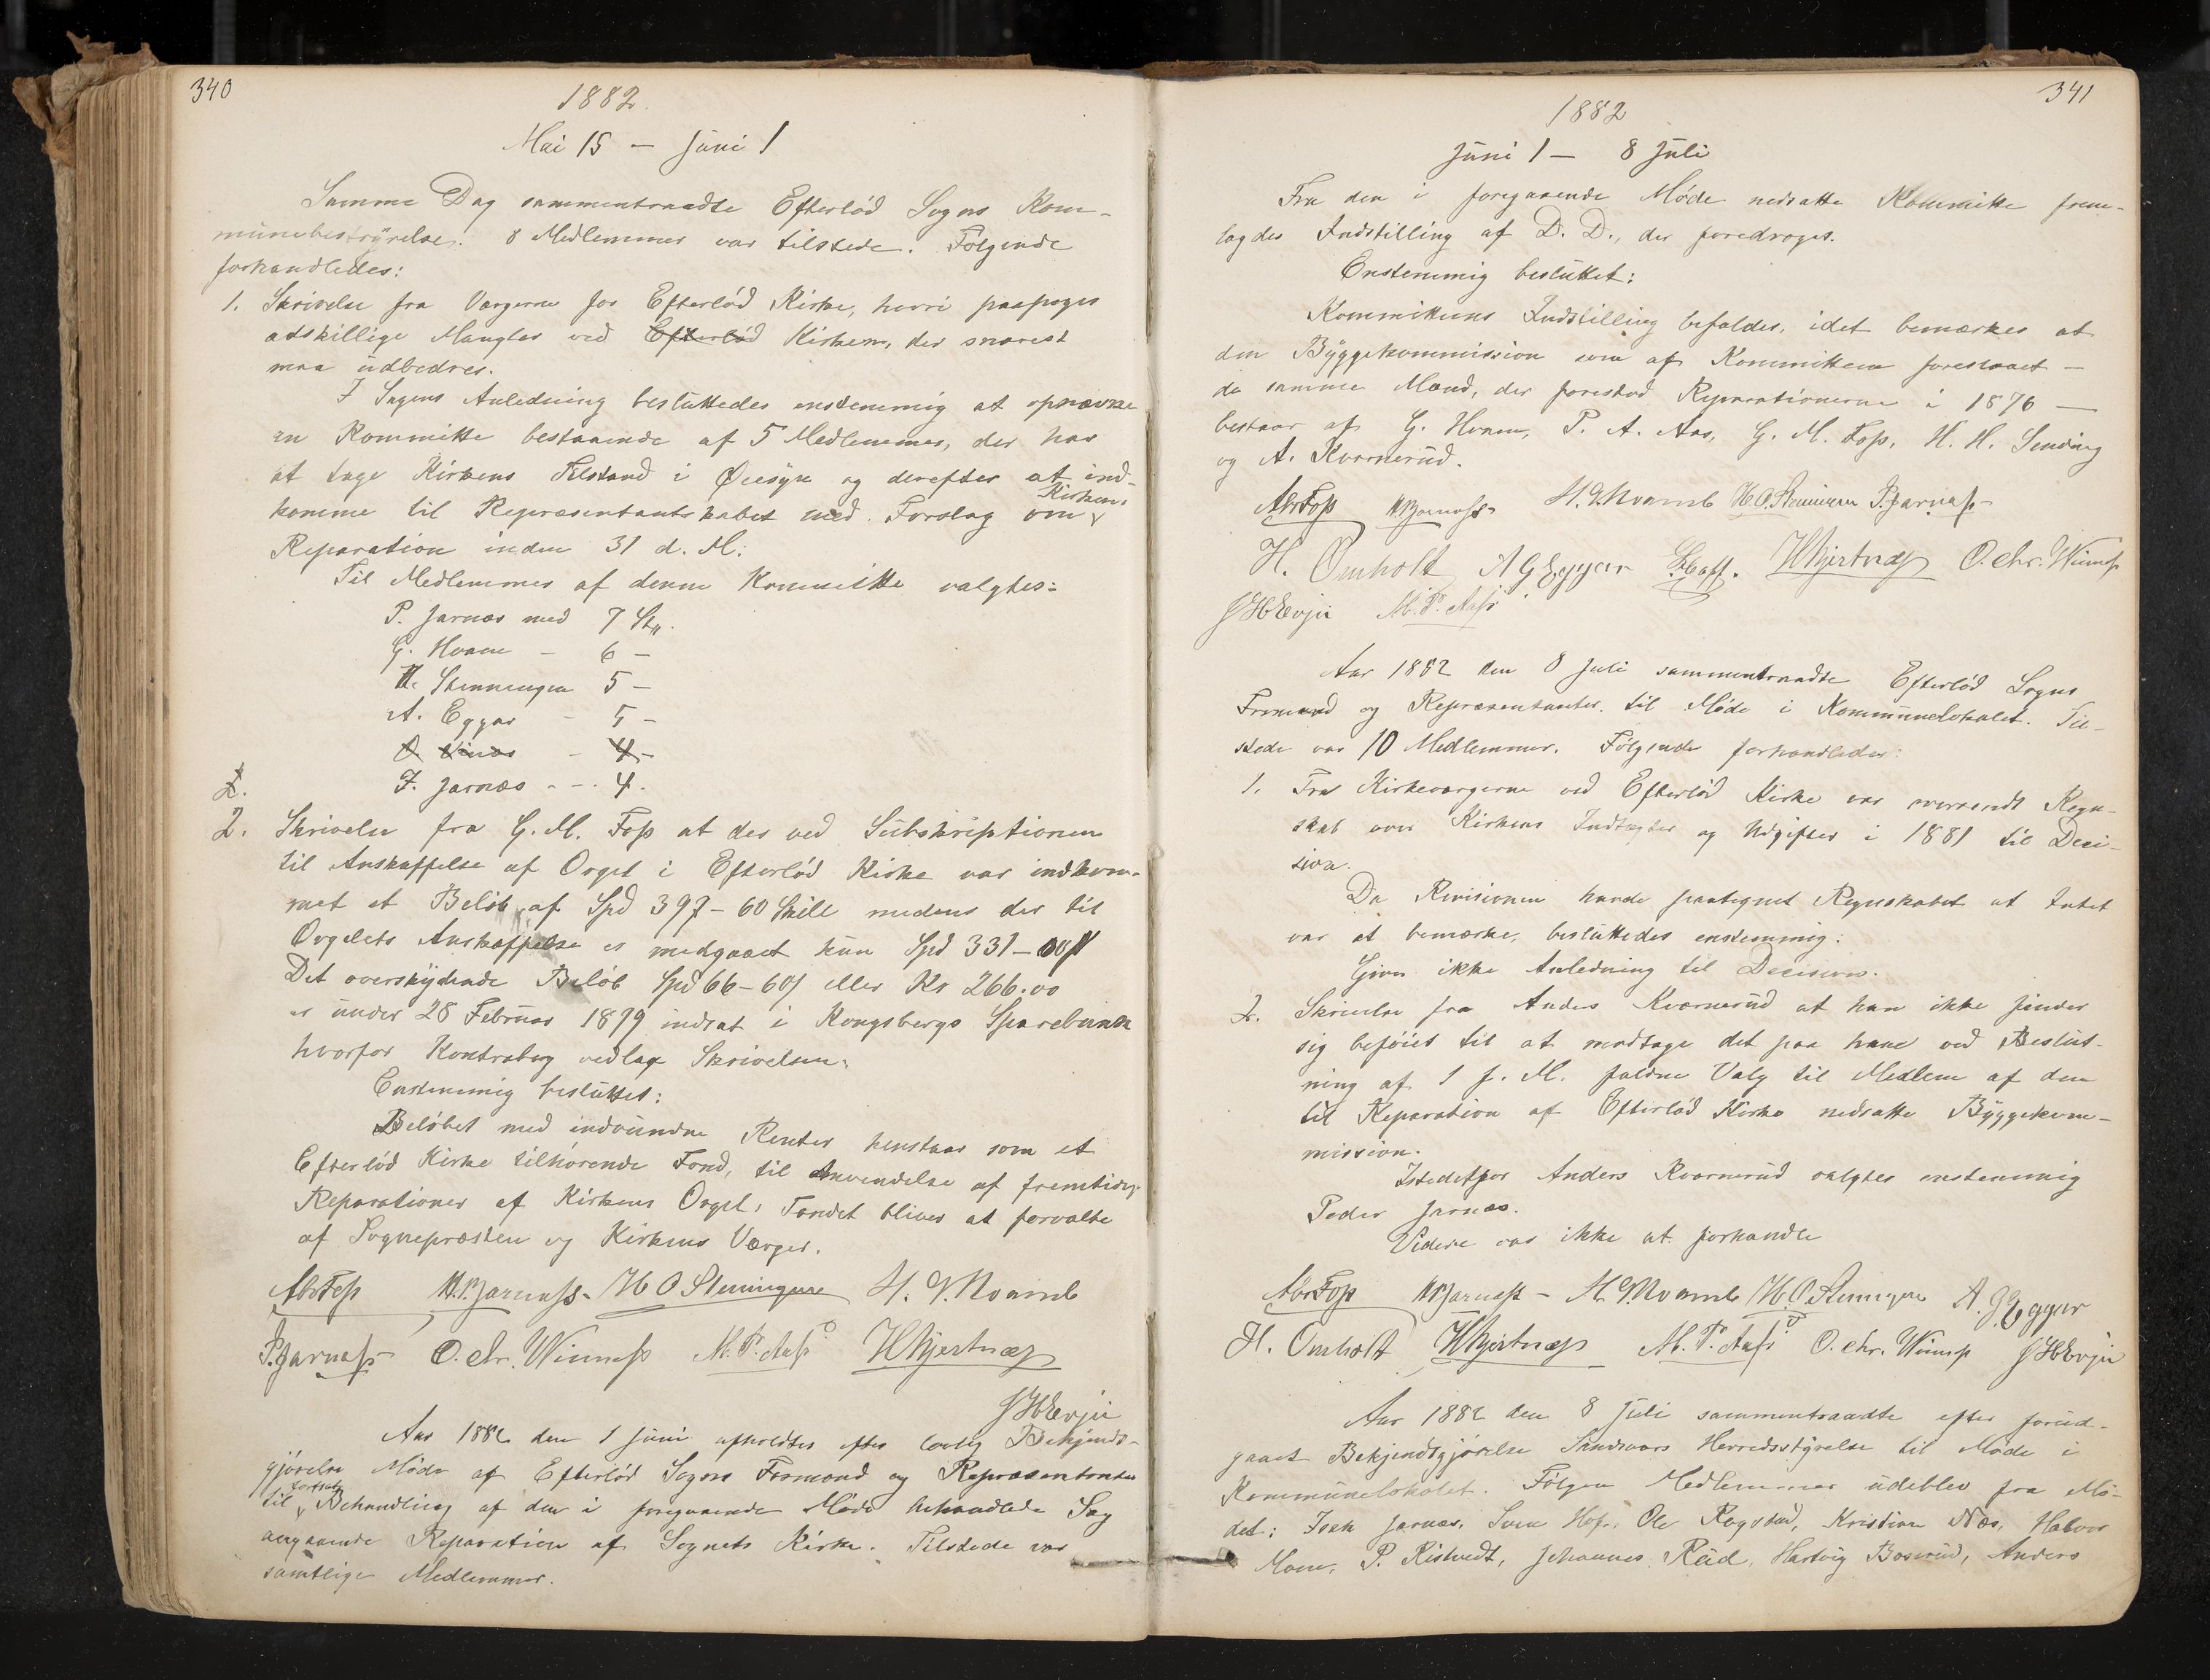 340
1882.
Mai 15 – Juni 1
Samme Dag sammentraadte Efterlød Sogns Kom-
munebestyrelse. 8 Medlemmer var tilstede. Følgende
forhandledes:
1. Skrivelse fra Vergerne for Efterlød Kirke, hvori paapeges
adskillige Mangler ved Efterlød Kirken, der snarest
maa udbedres.
I Sagens Anledning besluttedes enstemmig at opnævne
en Kommitte bestaaende af 5 Medlemmer, der har
at tage Kirkens Tilstand i Øiesyn og derefter at ind-
Kirkens
komme til Repræsentantskabet med Forslag om
Reparation inden 31 d. M.
Til Medlemmer af denne Kommitte valgtes:
P. Jarnæs med 7 St.
G. Hvam – 6 –
H. Stenningen 5 –
A. Eggar – 5 –
O Vinæs – 4 –
I. Jarnæs - - . 4.
2.
2. Skrivelse fra G. M. Foss at der ved Subskriptionen
til Anskaffelse af Orgel i Efterlød Kirke var indkom-
met et Beløb af Spd 397 – 60 Skill medens der til
Orgelets Anskaffelse er medgaaet kun Spd 331 – 00 ß
Det overskydende Beløb Spd 66 – 60 ß eller Kr 266.00
er under 28 Februar 1879 indsat i Kongsbergs Sparebank
hvorfor Kontrabog vedlag Skrivelsen.
Enstemmig besluttet:
Beløbet med indvundne Renter henstaar som et
Efterlød Kirke tilhørende Fond, til Anvendelse af fremtidig
Reparationer af Kirkens Orgel. Fondet bliver at forvalte
af Sognepræsten og Kirkens Værger.
AbrFoss H.P.Jarnæss - H O Stenningen H. G. Hvamb
P.Jarnæss O. Chr. Winnæss M. P. Aass HHjertnæss
J H Evju
Aar 1882 den 1 Juni afholdtes efter lovlig Bekjendt-
gjørelse Møde af Efterlød Sogns Formænd og Repræsentanter
fortsat
til Behandling af den i foregaaende Møde behandlede Sag
angaaende Reparation af Sognets Kirke. Tilstede var
samtlige Medlemmer.
341
1882
Juni 1 – 8 Juli
Fra den i foregaaende Møde nedsatte Kommitte frem-
lagdes Indstilling af D. D., der foredroges.
Enstemmig besluttet:
Kommitteens Indstilling bifaldes, idet bemærkes at
den Byggekommission som af Kommitteen foreslaaet –
de samme Mænd, der forestod Reparationerne i 1876 –
bestaar af G. Hvam, P. A. Aas, G. M. Foss, H. H. Sending
og A. Kværnerud.
AbrFoss H.P.Jarnæss - H. G. Hvamb H.O. Stenningen P.Jarnæss -
H. Omholt A G Eggar HHjertnæss O. Chr. Winnæss
J H Evju M. P. Aass
Aar 1882 den 8 Juli sammentraadte Efterlød Sogns
Formænd og Repræsentanter til Møde i Kommunelokalet. Til-
stede var 10 Medlemmer. Følgende forhandledes:
1. Fra Kirkevergerne ved Efterlød Kirke var oversendt Regn-
skab over Kirkens Indtægter og Udgifter i 1881 til Deci-
sion.
Da Revisionen havde paategnet Regnskabet at Intet
var at bemærke, besluttedes enstemmig:
Giver ikke Anledning til Decision.
2. Skrivelse fra Anders Kværnerud at han ikke finder
sig beføiet til at modtage det paa ham ved Beslut-
ning af 1 f. M. faldne Valg til Medlem af den
til Reparation af Efterlød Kirke nedsatte Byggekom-
mission.
Istedetfor Anders Kværnerud valgtes enstemmig
Peder Jarnæs.
Videre var ikke at forhandle
AbrFoss H.P.Jarnæss - H. G. Hvamb H.O. Stenningen A. G. Eggar
H. Omholt HHjertnæss M. P. Aass O. Chr. Winnæss J H Evju
Aar 1882 den 8 Juli sammentraadte efter forud-
gaaet Bekjendtgjørelse Sandsværs Herredsstyrelse til Møde i
Kommunelokalet. Følgen Medlemmer udeblev fra Mø-
det: Isak Jarnæs, Sven Hof, Ole Rogstad, Kristian Næs, Halvor
Moen, P. Kistvedt, Johannes Rud, Hartvig Bosrud, Anders